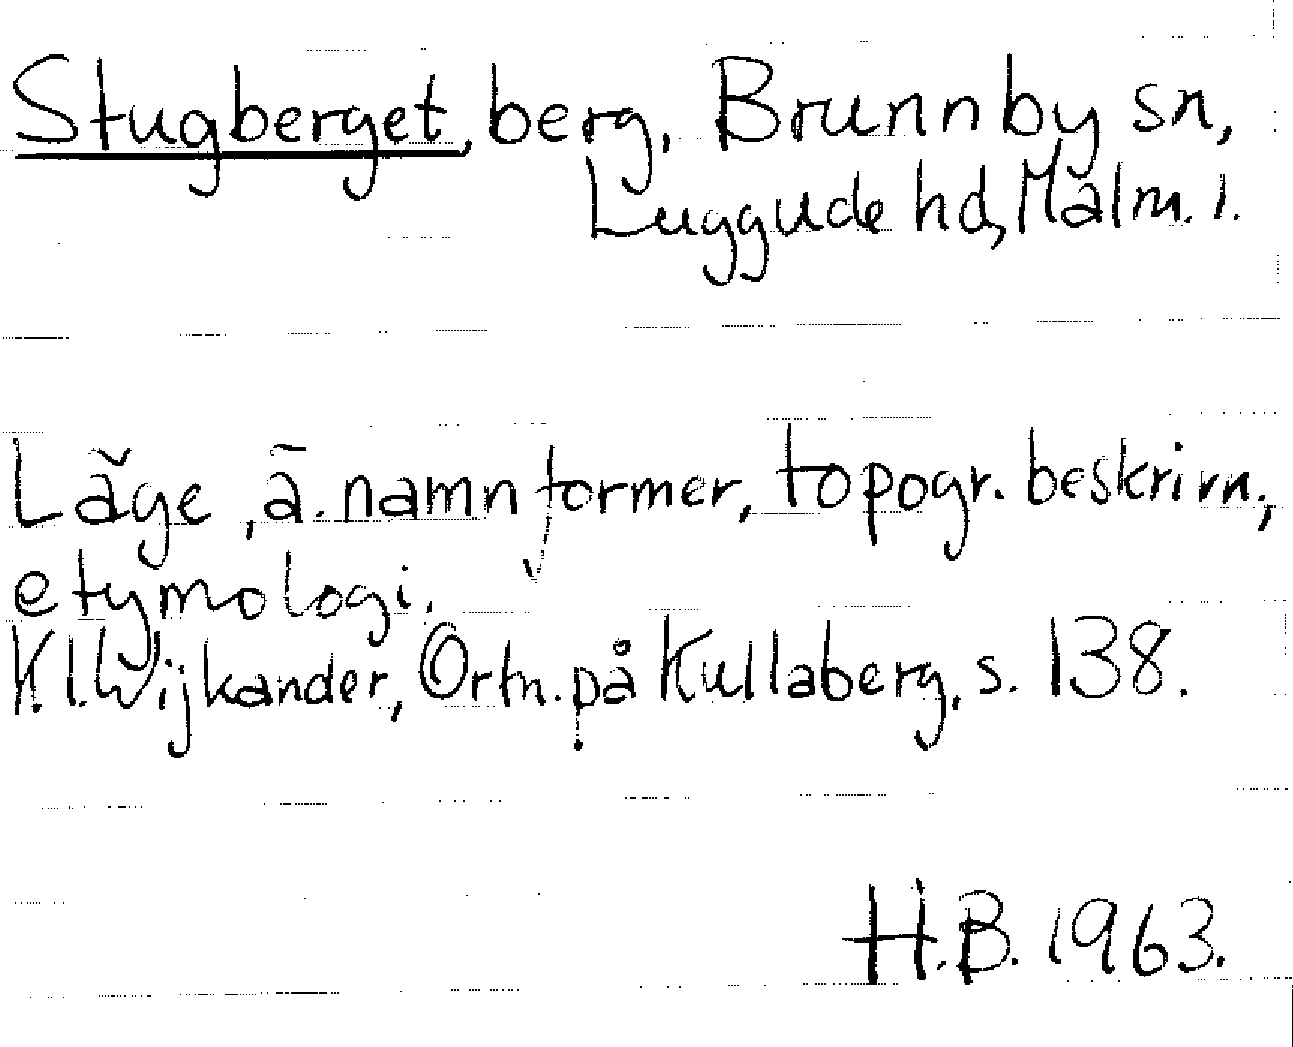 Stugberget, berg, Brunnby sn,
Luggude hd, Malm. l.
Läge, ä. namnformer, topogr. beskrivn.,
etymologi.
K.I.Wijkander, Ortn. på Kullaberg, s. 138.
H.B. 1963.